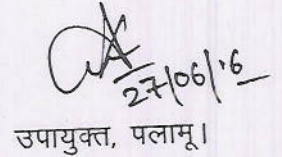 27/06/16
उपायुक्त, पलामू।